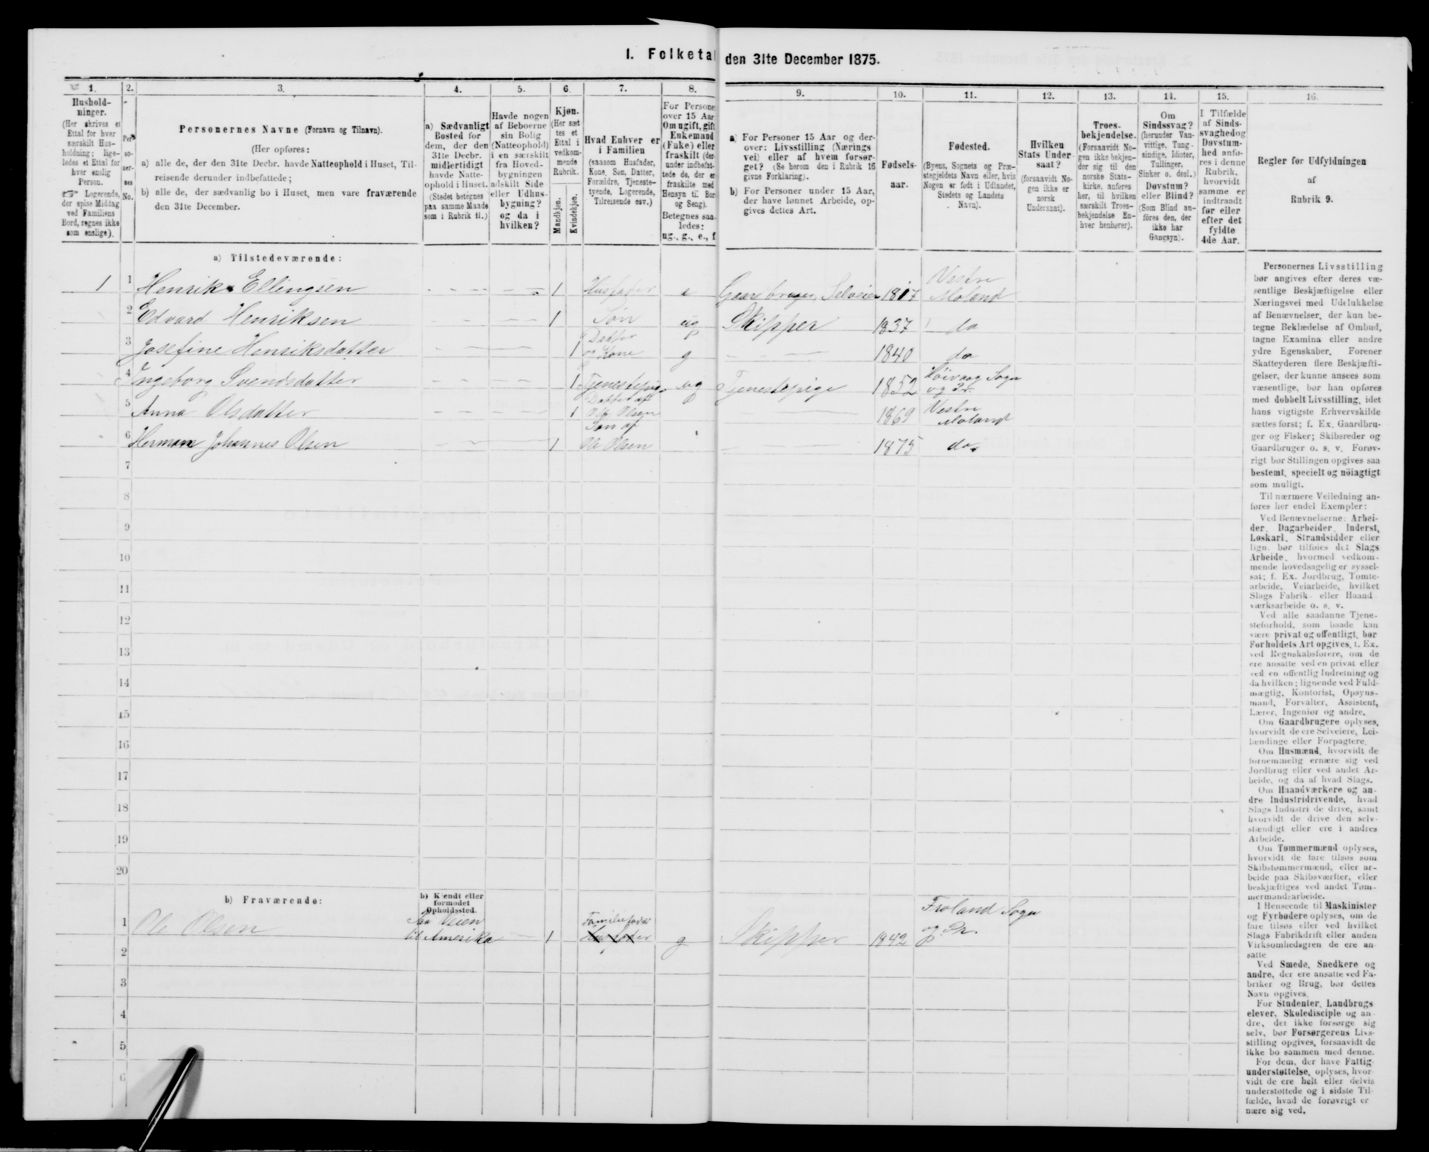 I. Folketal den 31te December 1875.
1. 2. 3. 4. 5. 6. 7. 8. 9. 10. 11. 12. 13. 14. 15. 16.
Hushold-
ninger.
(Her skrives et
Ettal for hver
særskilt Hus-
holdning; lige-
ledes et Ettal for
hver enslig
Person.
Logerende,
der spise Middag
ved Familiens
Bord, regnes ikke
som enslige).
No.
Personernes Navne (Fornavn og Tilnavn).
(Her opføres:
a) alle de, der den 31te Decbr. havde Natteophold i Huset, Til-
reisende derunder indbefattede;
b) alle de, der sædvanlig bo i Huset, men vare fraværende
den 31te December.
a) Sædvanligt
Bosted for
dem, der den
31te Decbr.
midlertidigt
havde Natte-
ophold i Huset.
(Stedet betegnes
paa samme Maade
som i Rubrik 11.)
Havde nogen
af Beboerne
sin Bolig
(Natteophold)
i en særskilt
fra Hoved-
bygningen
adskilt Side
eller Udhus-
bygning?
og da i
hvilken?
Kjøn.
(Her sæt-
tes et
Ettal i
vedkom-
mende
Rubrik.
Mandkjøn.
Kvindekjøn.
Hvad Enhver er
i Familien
(saasom Husfader,
Kone, Søn, Datter,
Forældre, Tjeneste-
tyende, Logerende,
Tilreisende osv.)
For Persone
over 15 Aar
Om ugift, gift
Enkemand
(Enke) eller
fraskilt (der-
under indbefat-
tede de, der er
fraskilte med
Hensyn til Bor
og Seng).
Betegnes saa-
ledes:
ug., g., e., f
a) For Personer 15 Aar og der-
over: Livsstilling (Nærings
vei) eller af hvem forsør-
get? (Se herom den i Rubrik 16
givne Forklaring).
b) For Personer under 15 Aar,
der have lønnet Arbeide, op-
gives dettes Art.
Fødsels-
aar.
Fødested.
(Byens, Sognets og Præ-
stegjeldets Navn eller, hvis
Nogen er født i Udlandet,
Stedets og Landets
Navn).
Hvilken
Stats Under
saat?
(forsaavidt No-
gen ikke er
norsk
Undersaat).
Troes-
bekjendelse.
(Forsaavidt No-
gen ikke bekjen-
der sig til den
norske Stats-
kirke, anføres
her, til hvilken
særskilt Troes-
bekjendelse En-
hver henhører).
Om
Sindssvag?
(herunder Van
vittige, Tung-
sindige, Idioter,
Tullinger,
Sinker o. desl.)
Døvstum?
eller Blind?
(Som Blind an-
føres den, der
ikke har
Gangsyn).
I Tilfælde
af Sinds-
svaghed og
Døvstum-
hed anfø-
res i denne
Rubrik,
hvorvidt
samme er
indtraadt
før eller
efter det
fyldte
4de Aar.
Regler før Udfyldningen
af
Rubrik 9.
a) Tilstedeværende:
1 1 Henrik Ellengsen 1 Husfader e Gaardbruger Selveier 1817 Vestre Moland
2 Edvard Henriksen 1 Søn ug Skipper 1837 do
3 Josefine Henriksdatter 1 Datter og Kone g 1840 do
4 Ingeborg Svendsdatter 1 Tjenestepige ug Tjenestepige 1852 Høivaag Sogn og Pr.
5 Anna Olsdatter 1 Datter af Ole Olsen 1869 Vestre Moland
6 Herman Johannes Olsen 1 Søn af Ole Olsen 1875 do
7
8
9
10
11
12
13
14
15
16
17
18
19
20
b) Fraværende:
b) Kjendt eller
formodet
Opholdssted.
1 Ole Olsen Paa Veien til Amerika 1 Familiefader g Skipper 1842 Froland Sogn og Pr.
2
3
4
5
6
Personernes Livsstilling
bør angives efter deres væ-
sentlige Beskjæftigelse eller
Næringsvei med Udelukkelse
af Benævnelser, der kun be-
tegne Beklædelse af Ombud,
tagne Examina eller andre
ydre Egenskaber. Forener
Skatteyderen flere Beskjæfti-
gelser, der kunne ansees som
væsentlige, bør han opføres
med dobbelt Livsstilling, idet
hans vigtigste Erhvervskilde
sættes først; f. Ex. Gaardbru-
ger og Fisker; Skibsreder og
Gaardbruger o. s. v. Forøv-
rigt bør Stillingen opgives saa
bestemt, specielt og nøiagtigt
som muligt.
Til nærmere Veiledning an-
føres her endel Exempler:
Ved Benævnelserne: Arbei-
der, Dagarbeider, Inderst,
Løskarl, Strandsidder eller
lign. bør tilføies det Slags
Arbeide, hvormed vedkom-
mende hovedsagelig er syssel-
sat; f. Ex. Jordbrug, Tomte-
arbeide, Veiarbeide, hvilket
Slags Fabrik- eller Haand-
værksarbeide o. s. v.
Ved alle saadanne Tjene-
steforhold, som baade kan
være privat og offentligt, bør
Forholdets Art opgives, f. Ex.
ved Regnskabsførere, om de
ere ansatte ved en privat eller
ved en offentlig Indretning og
da hvilken; lignende ved Fuld-
mægtig, Kontorist, Opsyns-
mand, Forvalter, Assistent,
Lærer, Ingeniør og andre.
Om Gaardbrugere oplyses,
hvorvidt de ere Selveiere, Lei-
lændinge eller Forpagtere.
Om Husmænd, hvorvidt de
fornemmelig ernære sig ved
Jordbrug eller ved andet Ar-
beide, og da af hvad Slags.
Om Haandværkere og an-
dre Industridrivende, hvad
Slags Industri de drive, samt
hvorvidt de drive den selv-
stændigt eller ere i andres
Arbeide.
Om Tømmermænd oplyses,
hvorvidt de fare tilsøs som
Skibstømmermænd, eller ar-
beide paa Skibsværfter, eller
beskjæftiges ved andet Tøm-
mermandsarbeide.
I Henseende til Maskinister
og Fyrbødere oplyses, om de
fare tilsøs eller ved hvilket
Slags Fabrikdrift eller anden
Virksomhedsgren de ere an-
satte.
Ved Smede, Snedkere og
andre, der ere ansatte ved Fa-
briker og Brug, bør dettes
Navn opgives.
For Studenter, Landbrugs
elever, Skoledisciple og an-
dre, der ikke forsørge sig
selv, bør Forsørgerens Livs-
stilling opgives, forsaavidt de
ikke bo sammen med denne.
For dem, der have Fattig-
understøttelse, oplyses, hvor-
vidt de ere helt eller delvis
understøttede og i sidste Til-
fælde, hvad de forøvrigt er
nære sig ved.